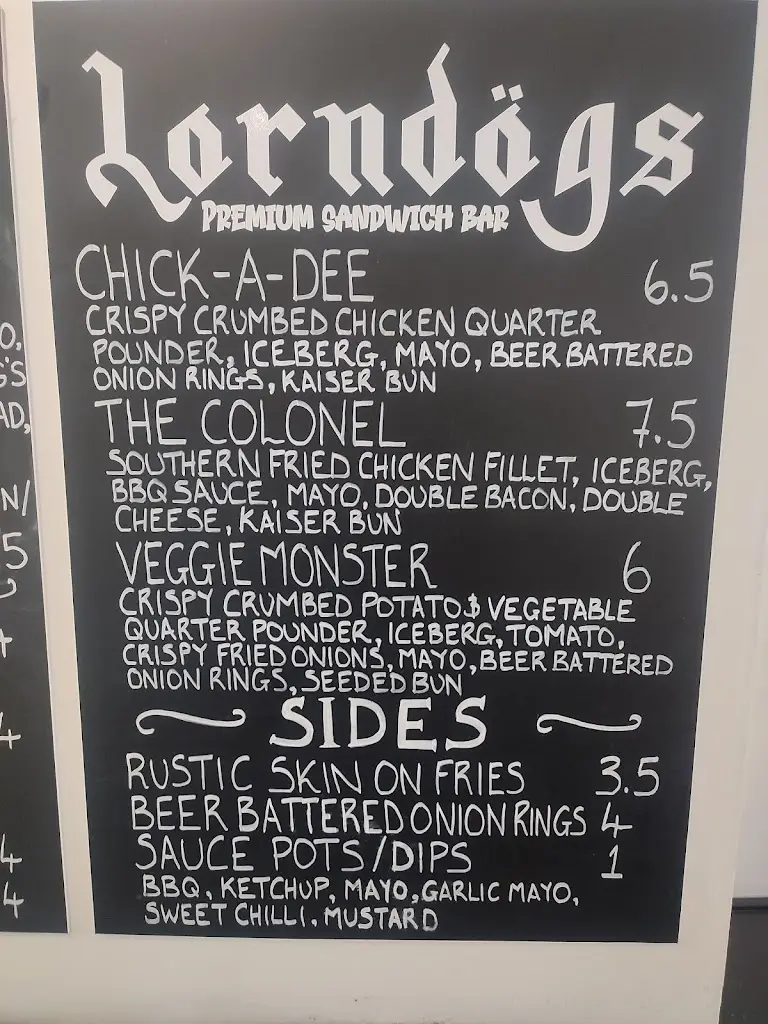 Lorndögs
PREMIUM SANDWICH BAR
CHICK-A-DEE 6.5
CRISPY CRUMBED CHICKEN QUARTER
POUNDER, ICEBERG, MAYO, BEER BATTERED
ONION RINGS, KAISER BUN
THE COLONEL 7.5
SOUTHERN FRIED CHICKEN FILLET, ICEBERG,
BBQ SAUCE, MAYO, DOUBLE BACON, DOUBLE
CHEESE, KAISER BUN
VEGGIE MONSTER 6
CRISPY CRUMBED POTATO & VEGETABLE
QUARTER POUNDER, ICEBERG, TOMATO,
CRISPY FRIED ONIONS, MAYO, BEER BATTERED
ONION RINGS, SEEDED BUN
SIDES
RUSTIC SKIN ON FRIES 3.5
BEER BATTERED ONION RINGS 4
SAUCE POTS/DIPS 1
BBQ, KETCHUP, MAYO, GARLIC MAYO,
SWEET CHILLI, MUSTARD